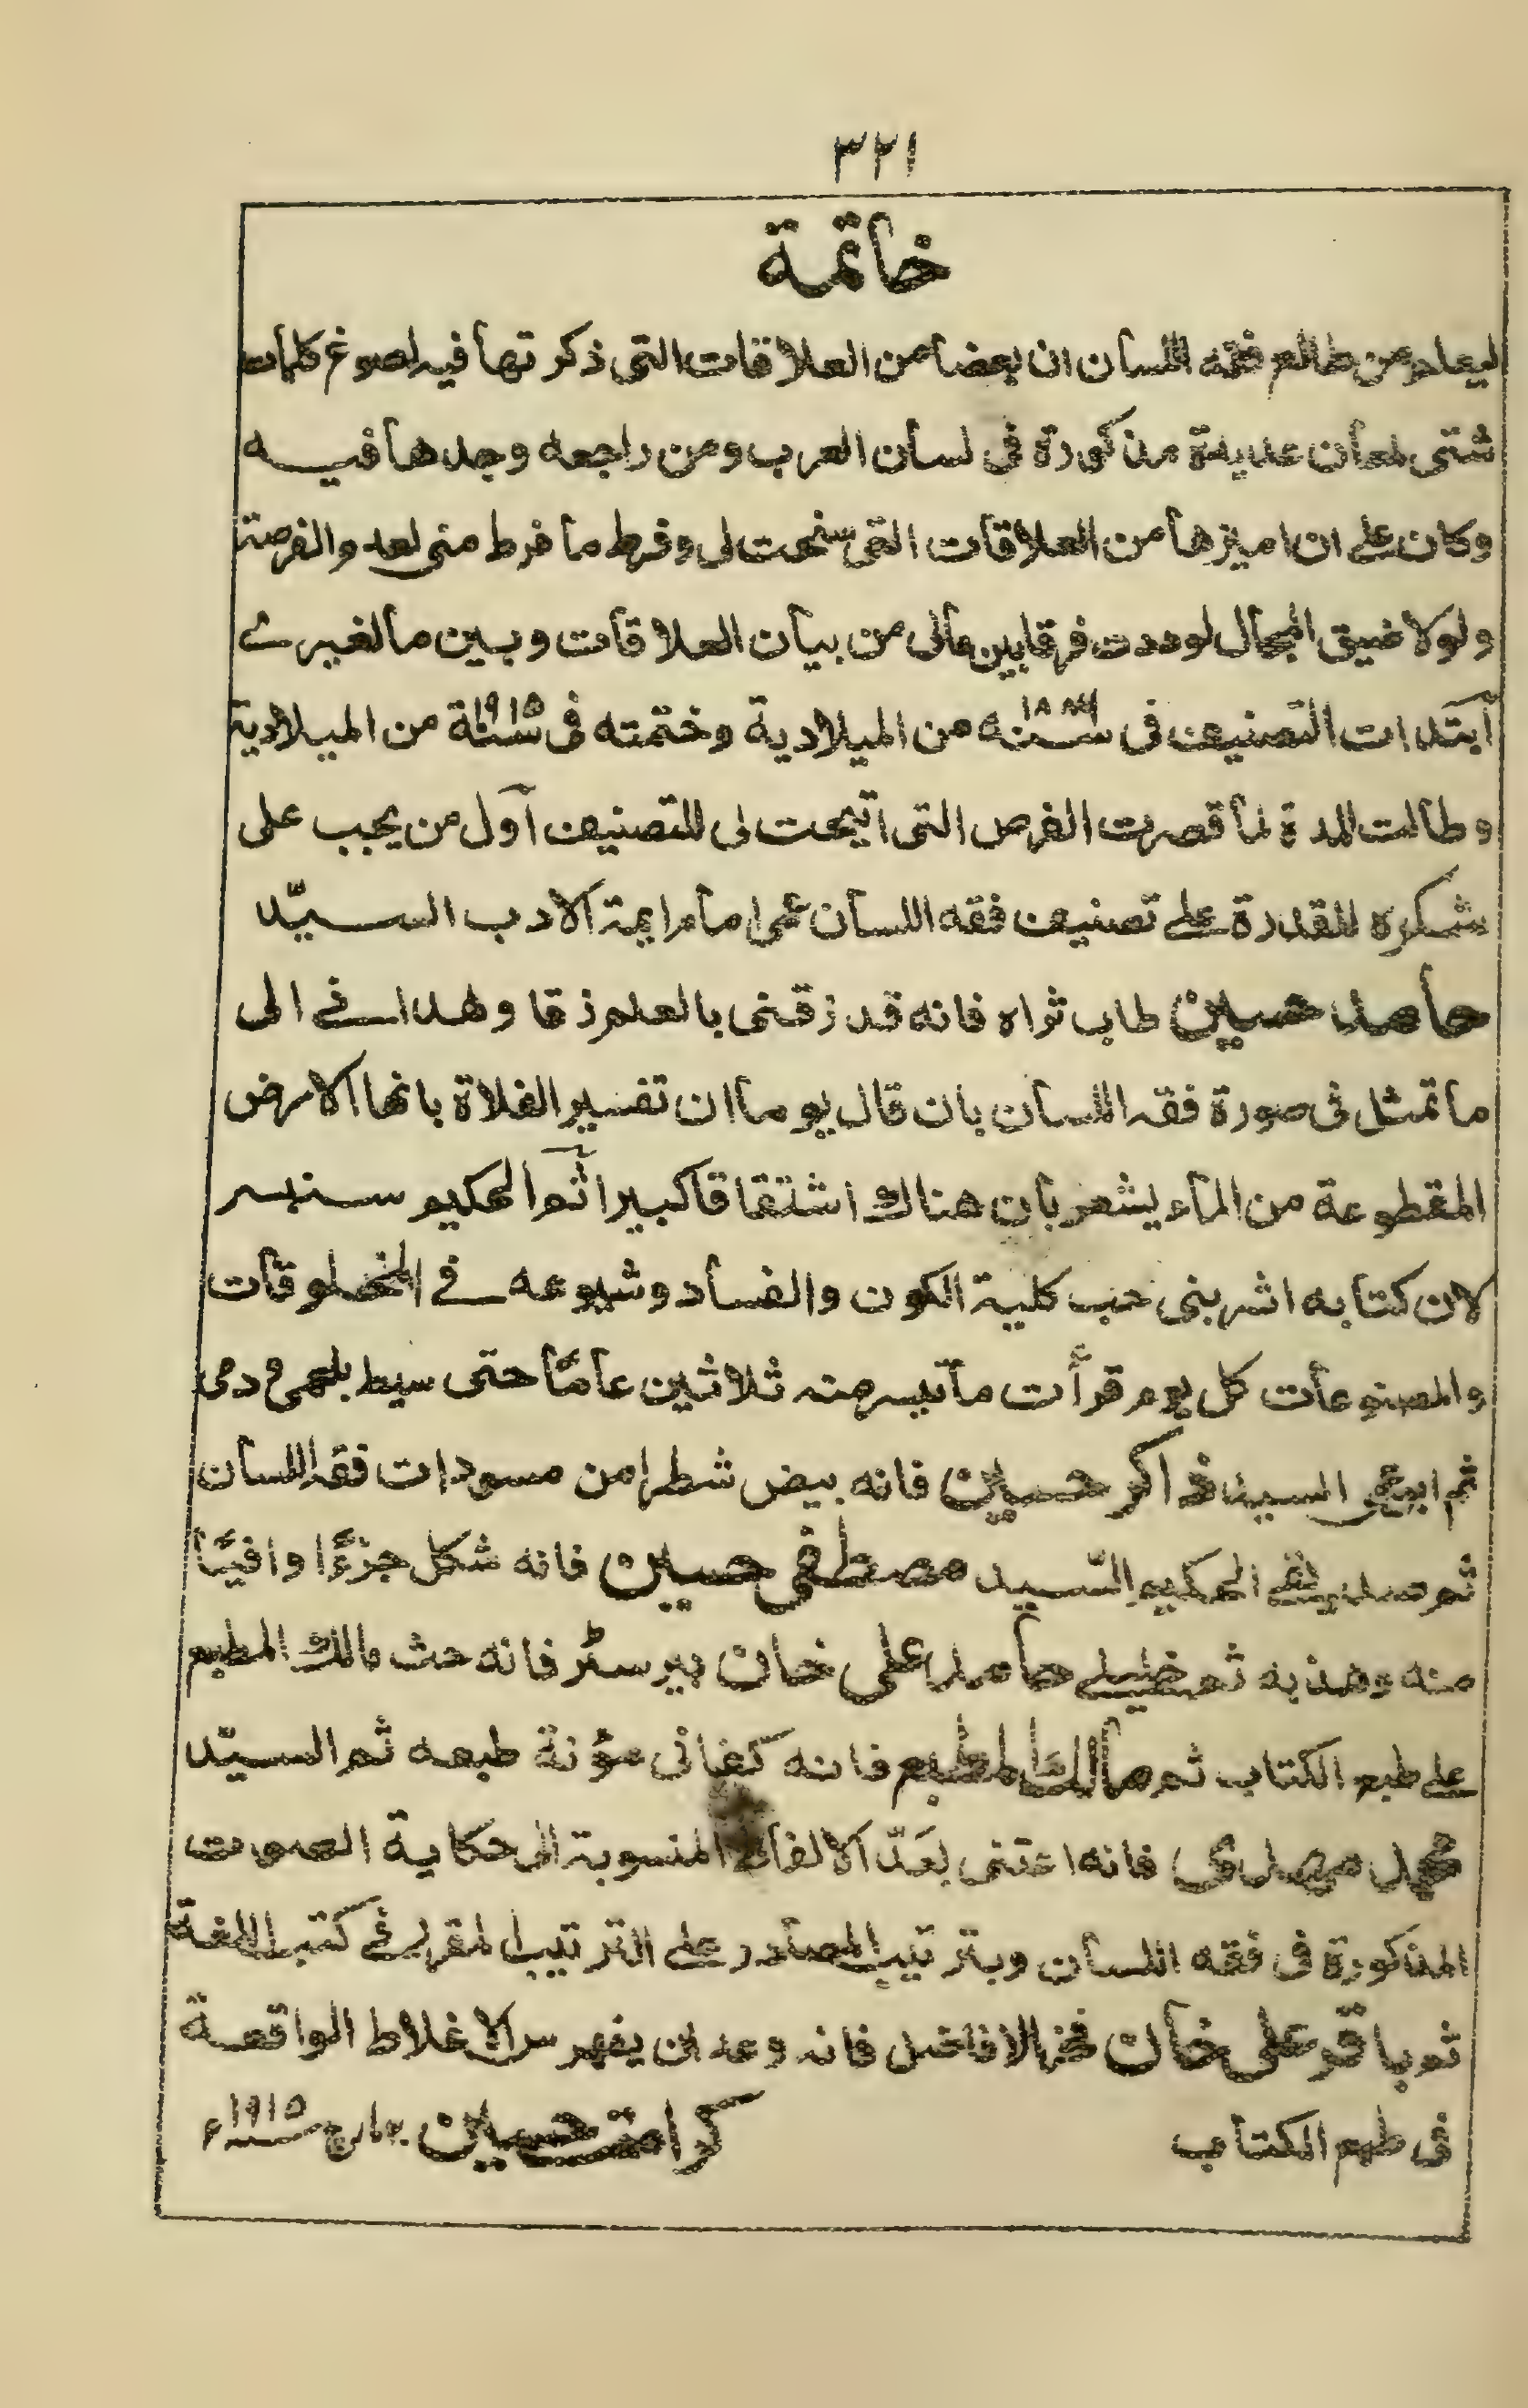 ٣٢١
خاتمة
ليعلم من طالع فقه اللسان ان بعضا من العلاقات التى ذكرتها فيه لصوغ كلمات
شتى لمعان عديدة مذكورة فى لسان العرب ومن راجعه وجدها فيه
وكان على ان اميزها من العلاقات التى سنحت لى وفرط ما فرط منى لعدم الفرصة
ولولا ضيق المجال لوددت فرقا بين مالى من بيان العلاقات وبين ما لغيرى
ابتدات التصنيف فى سنه ١٨٨٤ من الميلادية وختمته فى سنة ١٩١٥ من الميلادية
وطالت المدة لما قصرت الفرص التى اتيحت لى للتصنيف اول من يجب على
شكره للقدرة على تصنيف فقه اللسان عمى امام ايمة الادب السيّد
حامد حسين طاب ثراه فانه قد زقنى بالعلم زقا وهدانى الى
ما تمثل فى صورة فقه اللسان بان قال يوما ان تفسير الفلاة بانها الارض
المقطوعة من الماء يشعر بان هناك اشتقاقا كبيرا ثم الحكيم سنبسر
لان كتابه اشربنى حب كلية الكون والفساد وشيوعه فى المخلوقات
والمصنوعات كل يوم قرأت ما تيسر منه ثلاثين عامًا حتى سيط بلحمى ودمى
ثم ابن عمى السيد ذاكر حسين فانه بيض شطرا من مسودات فقه اللسان
ثم صديقى الحكيم السّيد مصطفى حسين فانه شكل جزءًا وافيًا
منه وهذبه ثم خليلى حامد على خان بيرسٹر فانه حث مالك المطبع
على طبع الكتاب ثم مالك المطبع فانه كفانى مؤنة طبعه ثم السيّد
محمد مهدى فانه اعتنى بعَدّ الالفاظ المنسوبة الى حكاية الصوت
المذكورة فى فقه اللسان وبترتيب المصادر على الترتيب المقرر فى كتب اللغة
ثم باقر على خان فخر الافاضل فانه وعد ان يفهرس الاغلاط الواقعة
فى طبع الكتاب كرامت حسين مارچ سنه ١٩١٥ء